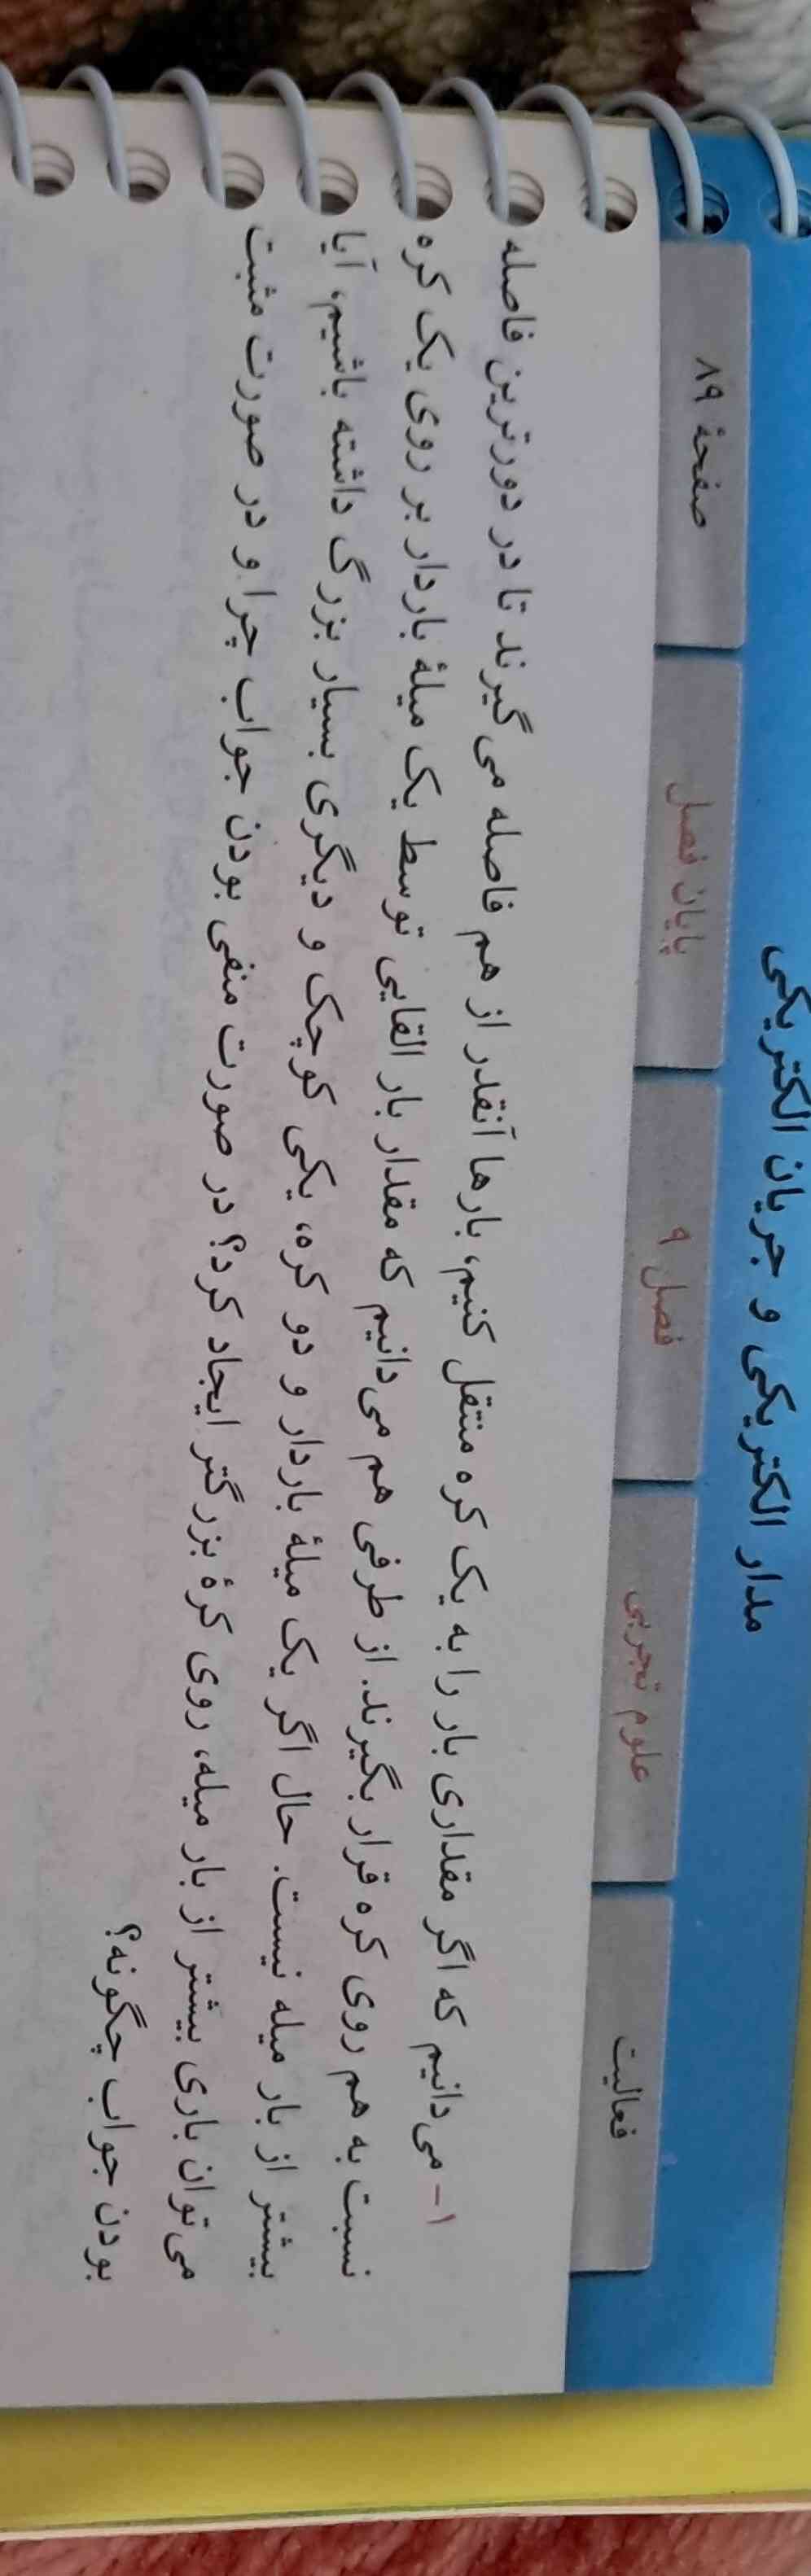 مدار الکتریکی و جریان الکتریکی
فعالیت علوم تجربی فصل ۹ پایان فصل صفحهٔ ۸۹
۱- می‌دانیم که اگر مقداری بار را به یک کره منتقل کنیم، بارها آنقدر از هم فاصله می‌گیرند تا در دورترین فاصله
نسبت به هم روی کره قرار بگیرند. از طرفی هم می‌دانیم که مقدار بار القایی توسط یک میلهٔ باردار بر روی یک کره
بیشتر از بار میله نیست. حال اگر یک میلهٔ باردار و دو کره، یکی کوچک و دیگری بسیار بزرگ داشته باشیم، آیا
می‌توان باری بیشتر از بار میله، روی کرهٔ بزرگتر ایجاد کرد؟ در صورت منفی بودن جواب چرا و در صورت مثبت
بودن جواب چگونه؟